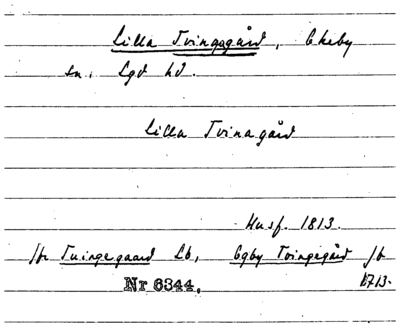 Lilla Tvingegård, Ekeby
sn. Lgd hd.
Lilla Tvinagård
Husf. 1813.
fr Tuingegaard Lb, Egby Tvingegård Jb
1713.
Nr 6344.